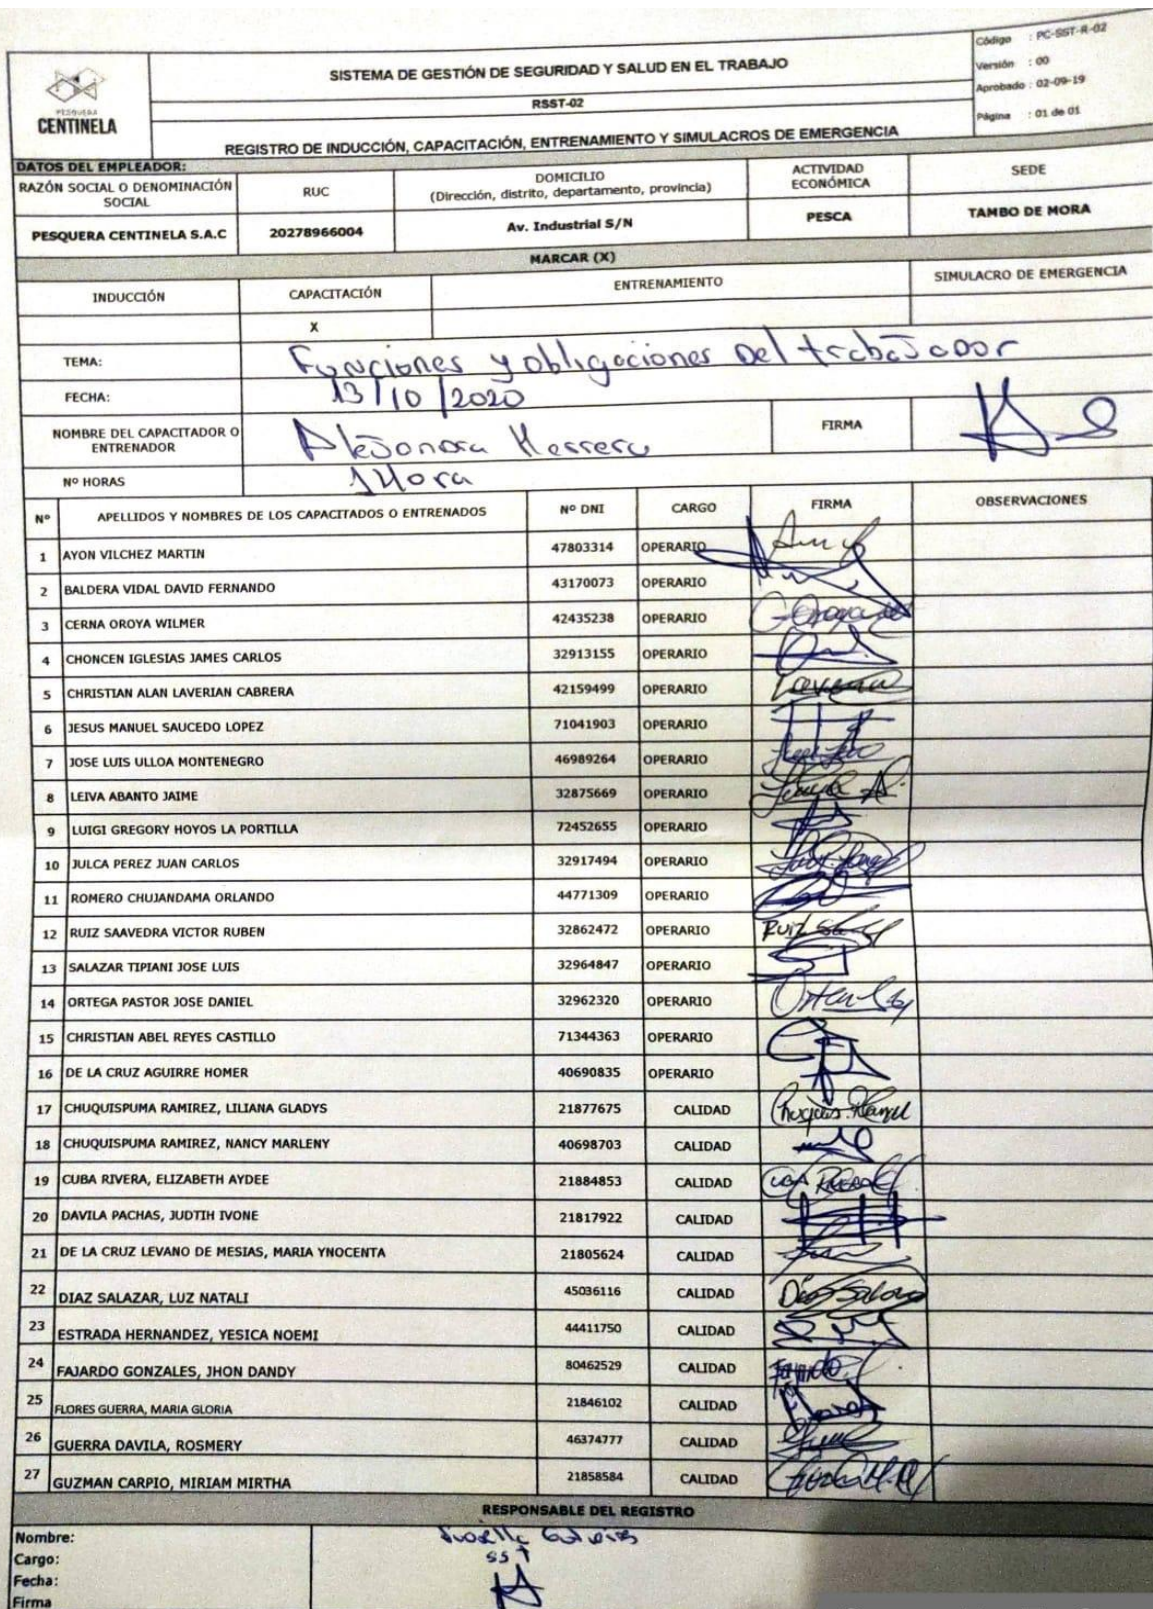 Código : PC-SST-R-02
Versión : 00
Aprobado : 02-09-19
Página : 01 de 01
PESQUERA
CENTINELA
SISTEMA DE GESTIÓN DE SEGURIDAD Y SALUD EN EL TRABAJO
RSST-02
REGISTRO DE INDUCCIÓN, CAPACITACIÓN, ENTRENAMIENTO Y SIMULACROS DE EMERGENCIA
DATOS DEL EMPLEADOR:
RAZÓN SOCIAL O DENOMINACIÓN SOCIAL RUC DOMICILIO (Dirección, distrito, departamento, provincia) ACTIVIDAD ECONÓMICA SEDE
PESQUERA CENTINELA S.A.C 20278966004 Av. Industrial S/N PESCA TAMBO DE MORA
MARCAR (X)
INDUCCIÓN CAPACITACIÓN ENTRENAMIENTO SIMULACRO DE EMERGENCIA
X
TEMA: Funciones y obligaciones Del trabajador
FECHA: 13/10/2020
NOMBRE DEL CAPACITADOR O ENTRENADOR Herrera FIRMA
Nº HORAS 1 Hora
Nº APELLIDOS Y NOMBRES DE LOS CAPACITADOS O ENTRENADOS Nº DNI CARGO FIRMA OBSERVACIONES
1 AYON VILCHEZ MARTIN 47803314 OPERARIO
2 BALDERA VIDAL DAVID FERNANDO 43170073 OPERARIO
3 CERNA OROYA WILMER 42435238 OPERARIO
4 CHONCEN IGLESIAS JAMES CARLOS 32913155 OPERARIO
5 CHRISTIAN ALAN LAVERIAN CABRERA 42159499 OPERARIO
6 JESUS MANUEL SAUCEDO LOPEZ 71041903 OPERARIO
7 JOSE LUIS ULLOA MONTENEGRO 46989264 OPERARIO
8 LEIVA ABANTO JAIME 32875669 OPERARIO
9 LUIGI GREGORY HOYOS LA PORTILLA 72452655 OPERARIO
10 JULCA PEREZ JUAN CARLOS 32917494 OPERARIO
11 ROMERO CHUJANDAMA ORLANDO 44771309 OPERARIO
12 RUIZ SAAVEDRA VICTOR RUBEN 32862472 OPERARIO RUIZ
13 SALAZAR TIPIANI JOSE LUIS 32964847 OPERARIO
14 ORTEGA PASTOR JOSE DANIEL 32962320 OPERARIO
15 CHRISTIAN ABEL REYES CASTILLO 71344363 OPERARIO
16 DE LA CRUZ AGUIRRE HOMER 40690835 OPERARIO
17 CHUQUISPUMA RAMIREZ, LILIANA GLADYS 21877675 CALIDAD
18 CHUQUISPUMA RAMIREZ, NANCY MARLENY 40698703 CALIDAD
19 CUBA RIVERA, ELIZABETH AYDEE 21884853 CALIDAD
20 DAVILA PACHAS, JUDTIH IVONE 21817922 CALIDAD
21 DE LA CRUZ LEVANO DE MESIAS, MARIA YNOCENTA 21805624 CALIDAD
22 DIAZ SALAZAR, LUZ NATALI 45036116 CALIDAD
23 ESTRADA HERNANDEZ, YESICA NOEMI 44411750 CALIDAD
24 FAJARDO GONZALES, JHON DANDY 80462529 CALIDAD
25 FLORES GUERRA, MARIA GLORIA 21846102 CALIDAD
26 GUERRA DAVILA, ROSMERY 46374777 CALIDAD
27 GUZMAN CARPIO, MIRIAM MIRTHA 21858584 CALIDAD
RESPONSABLE DEL REGISTRO
Nombre:
Cargo: SST
Fecha:
Firma